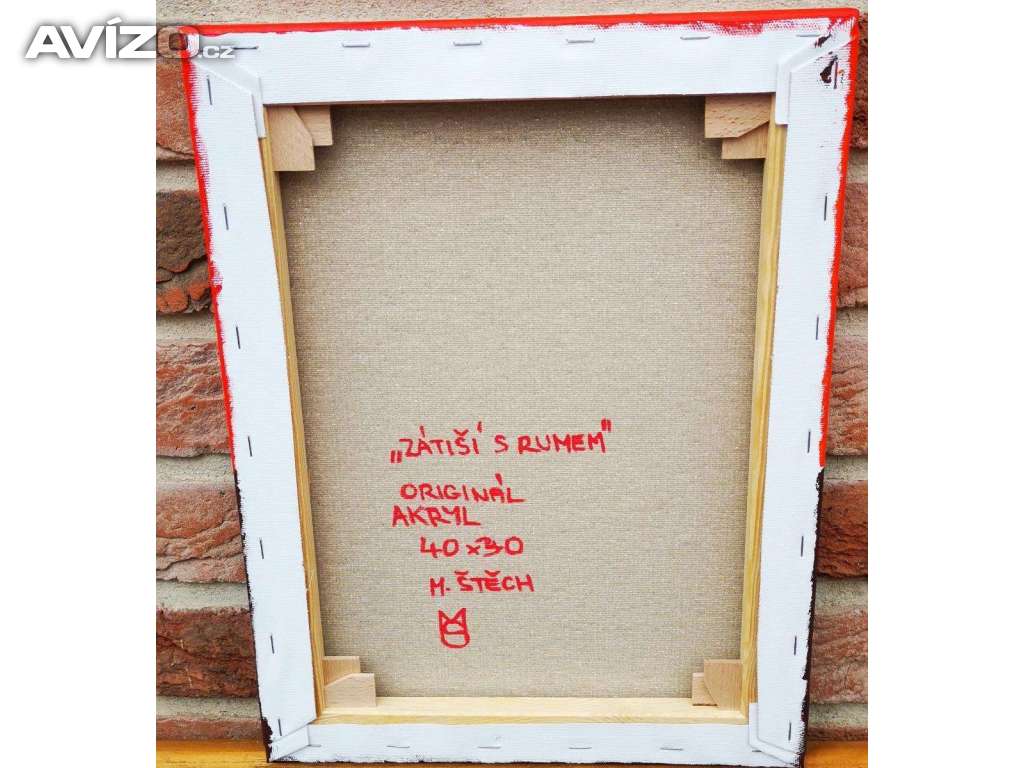 AVÍZO.cz
„ZÁTIŠÍ S RUMEM"
ORIGINÁL
AKRYL
40x30
M. ŠTĚCH